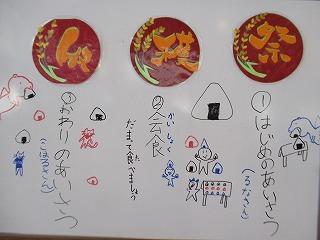 収穫祭
①はじめのあいさつ
(るなさん)
②会食
かいしょく
だまって食べましょう
た
③おわりのあいさつ
(こはるさん)